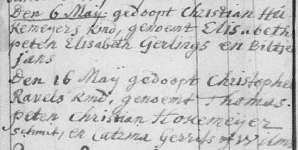 Den 6 Maÿ gedoopt Christian Hei
kemeÿers kind, genoemt Elisabeth
peten Elisabeth Gerlings en Biltje
Jans
Den 16 Maÿ gedoopt Christophel
Ravels kind, genoemt Thomas.
peten Christian Hokemeÿer
Schmit, en Catrina Gerrits of Wilms